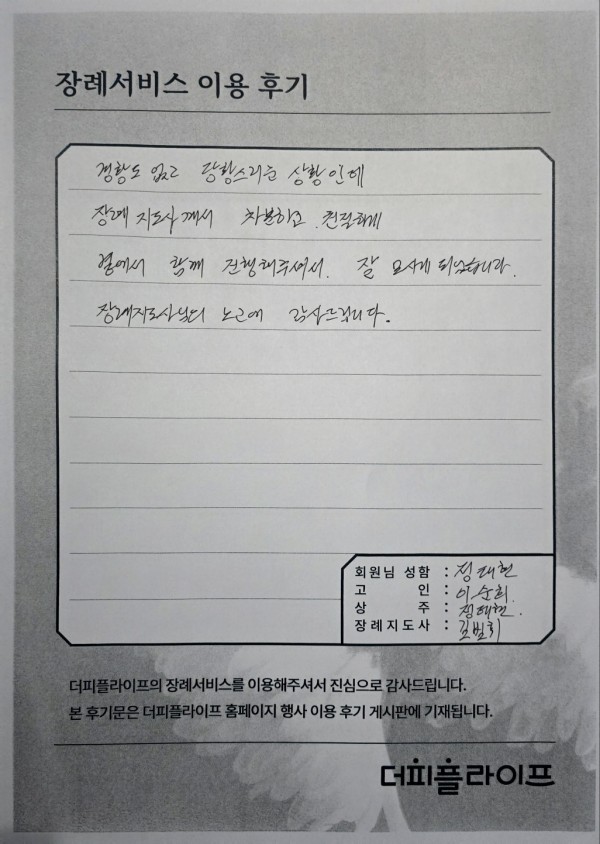 장례서비스 이용 후기
경황도 없고 당황스러운 상황인데
장례 지도사께서 차분하고 친절하게
옆에서 함께 진행해주셔서. 잘 모시게 되었습니다.
장례지도사님의 노고에 감사드립니다.
회원님 성함 : 정태현
고 인 : 이순희.
상 주 : 정태현.
장례지도사 : 김범휘
더피플라이프의 장례서비스를 이용해주셔서 진심으로 감사드립니다.
본 후기문은 더피플라이프 홈페이지 행사 이용 후기 게시판에 기재됩니다.
더피플라이프